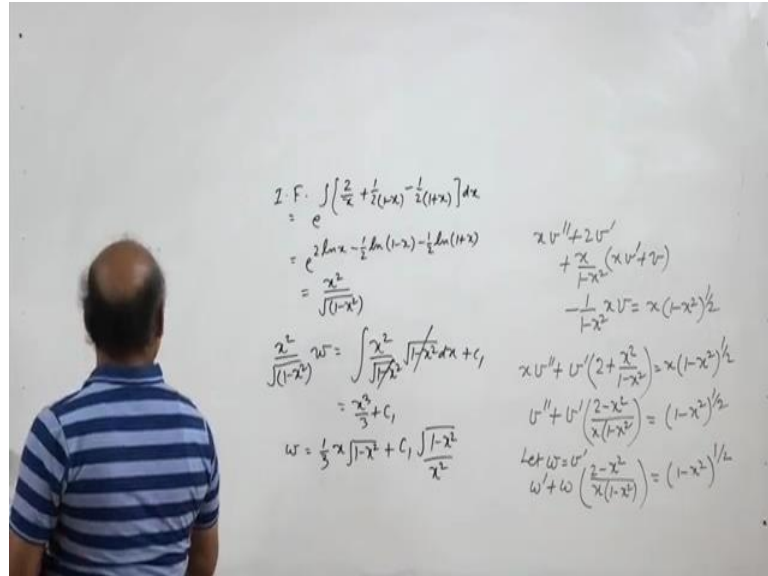 I.F. = e^{∫[2/x + 1/2(1-x) - 1/2(1+x)]dx}
= e^{2lnx - 1/2 ln(1-x) - 1/2 ln(1+x)}
= x²/√(1-x²)
x²/√(1-x²) w = ∫ x²/√(1-x²) √(1-x²) dx + C₁
= x³/3 + C₁
w = 1/3 x√(1-x²) + C₁ √(1-x²)/x²
xv'' + 2v'
+ x/(1-x²) (xv' + v)
- 1/(1-x²) xv = x(1-x²)^{1/2}
xv'' + v'(2 + x²/(1-x²)) = x(1-x²)^{1/2}
v'' + v'((2-x²)/(x(1-x²))) = (1-x²)^{1/2}
Let w = v'
w' + w((2-x²)/(x(1-x²))) = (1-x²)^{1/2}